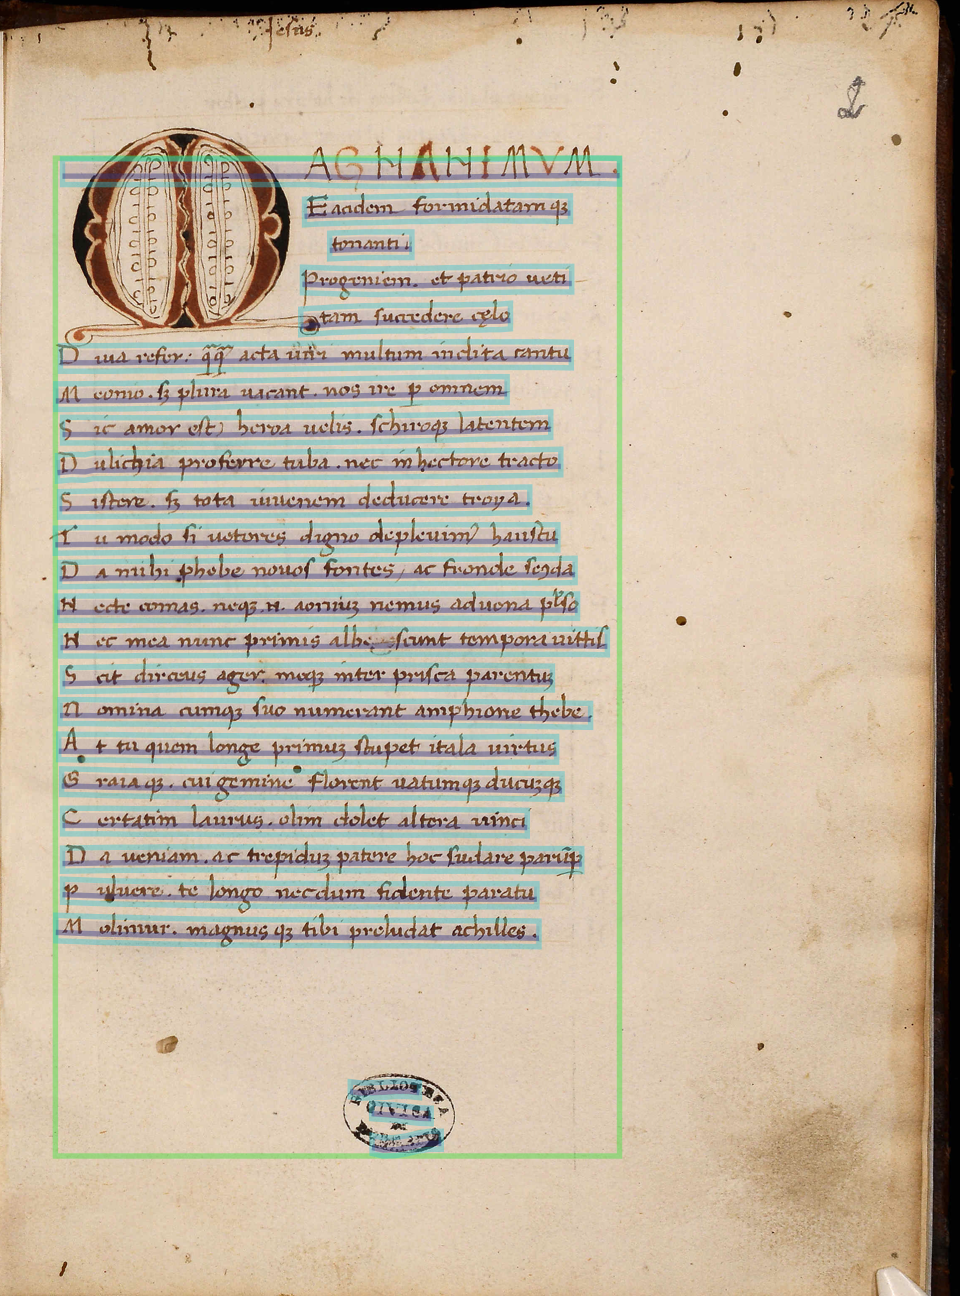 Jesus.
2
MAGNANIMVM.
Eacidem formidatamqꝫ
tonanti.
Progeniem. et patrio veti
tam succedere cęlo
Diua refer. q̄q̄ acta uiri multum inclita cantu
Meonio. sꝫ plura uacant. nos ire ꝑ omnem
Sic amor est, heroa uelis. schiroqꝫ latentem
Dulichia proferre tuba. nec in hectore tracto
Sistere. sꝫ tota iuuenem deducere troya.
Tu modo si ueteres digno depleuim⁹ haustu
Da mihi phebe nouos fontes, ac fronde secūda
Necte comas. neqꝫ .n. aoniuꝫ nemus aduena pulso
Nec mea nunc primis albescunt tempora uittis
Scit dirceus ager. meqꝫ inter prisca parentuꝫ
Nomina cumqꝫ suo numerant amphione thebe.
At tu quem longe primuꝫ stupet itala uirtus
Graiaqꝫ. cui gemine florent uatumqꝫ ducuꝫqꝫ
Certatim laurus. olim dolet altera uinci
Da ueniam. ac trepiduꝫ patere hoc sudare parūꝑ
Puluere. te longo necdum fidente paratu
Molimur. magnusqꝫ tibi preludat achilles.
BIBLIOTECA
CIVICA